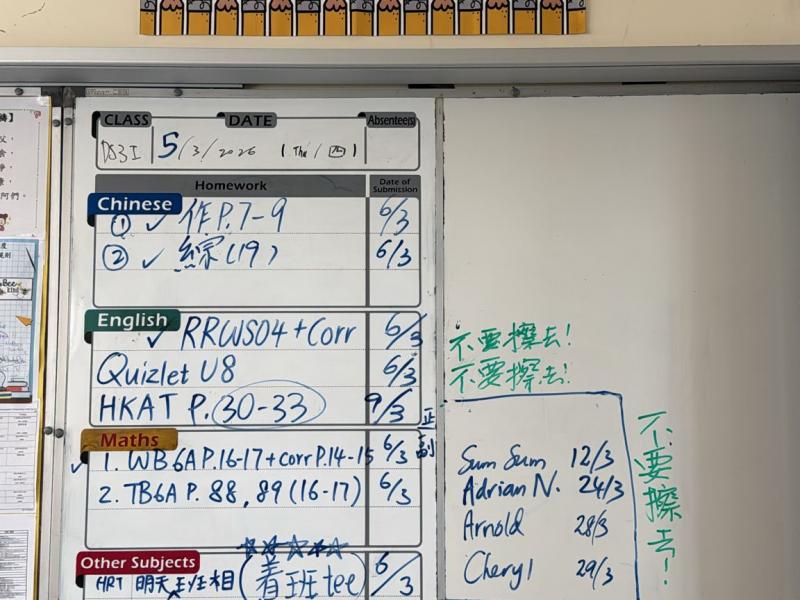 CLASS DATE Absentee(s)
5/3/2026 (Thu/四)
Homework Date of Submission
Chinese
① ✓ 作P.7-9 6/3
② ✓ 綜(19) 6/3
English
✓ RRWS04+Corr 6/3
Quizlet U8 6/3
HKAT P.30-33 9/3
正
副
Maths
✓ 1. WB6A P.16-17+corr P.14-15 6/3
2. TB6A P. 88, 89 (16-17) 6/3
Other Subjects
ART 明天 班相 (着班tee) 6/3
不要擦去!
不要擦去!
Sum Sum 12/3
Adrian N. 24/3
Arnold 28/3
Cheryl 29/3
不要擦去!